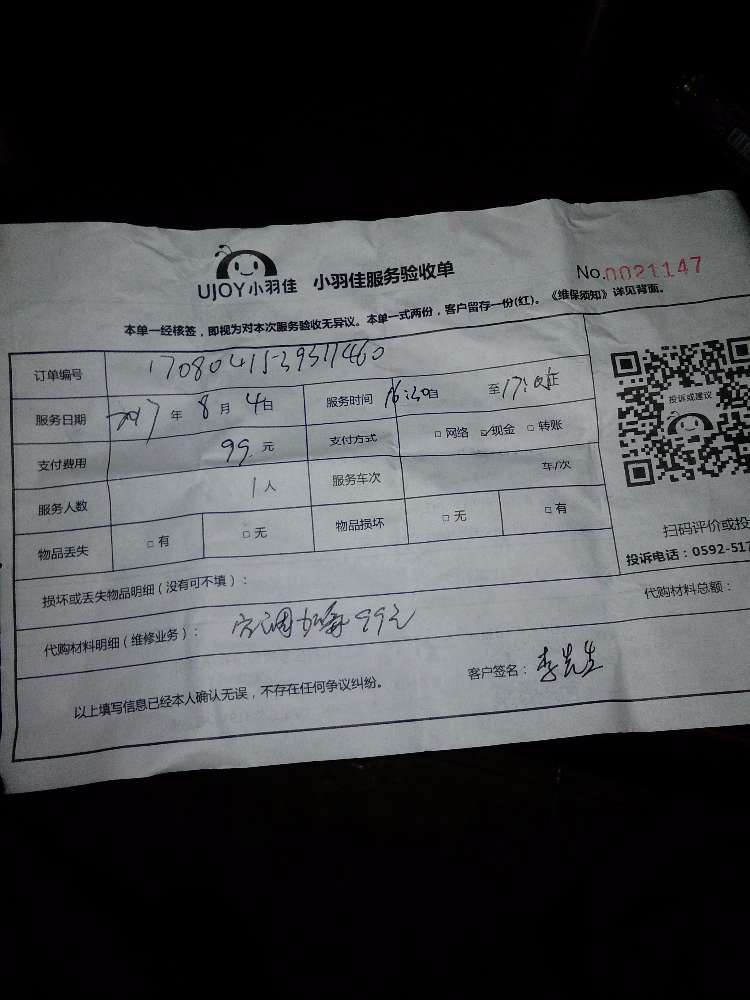 UJOY小羽佳 小羽佳服务验收单 No.0021147
本单一经核签，即视为对本次服务验收无异议。本单一式两份，客户留存一份(红)。《维保须知》详见背面。
订单编号
服务日期 2017 年 8 月 4 日 服务时间 16:30 自 至 17:
支付费用 99 元 支付方式 □ 网络 ☑ 现金 □ 转账
服务人数 1 人 服务车次 车/次
物品丢失 □ 有 □ 无 物品损坏 □ 无 □ 有
投诉或建议
扫码评价或投
投诉电话：0592-517
损坏或丢失物品明细（没有可不填）：
代购材料明细（维修业务）： 空调加氟99元 代购材料总额：
以上填写信息已经本人确认无误，不存在任何争议纠纷。 客户签名： 李先生